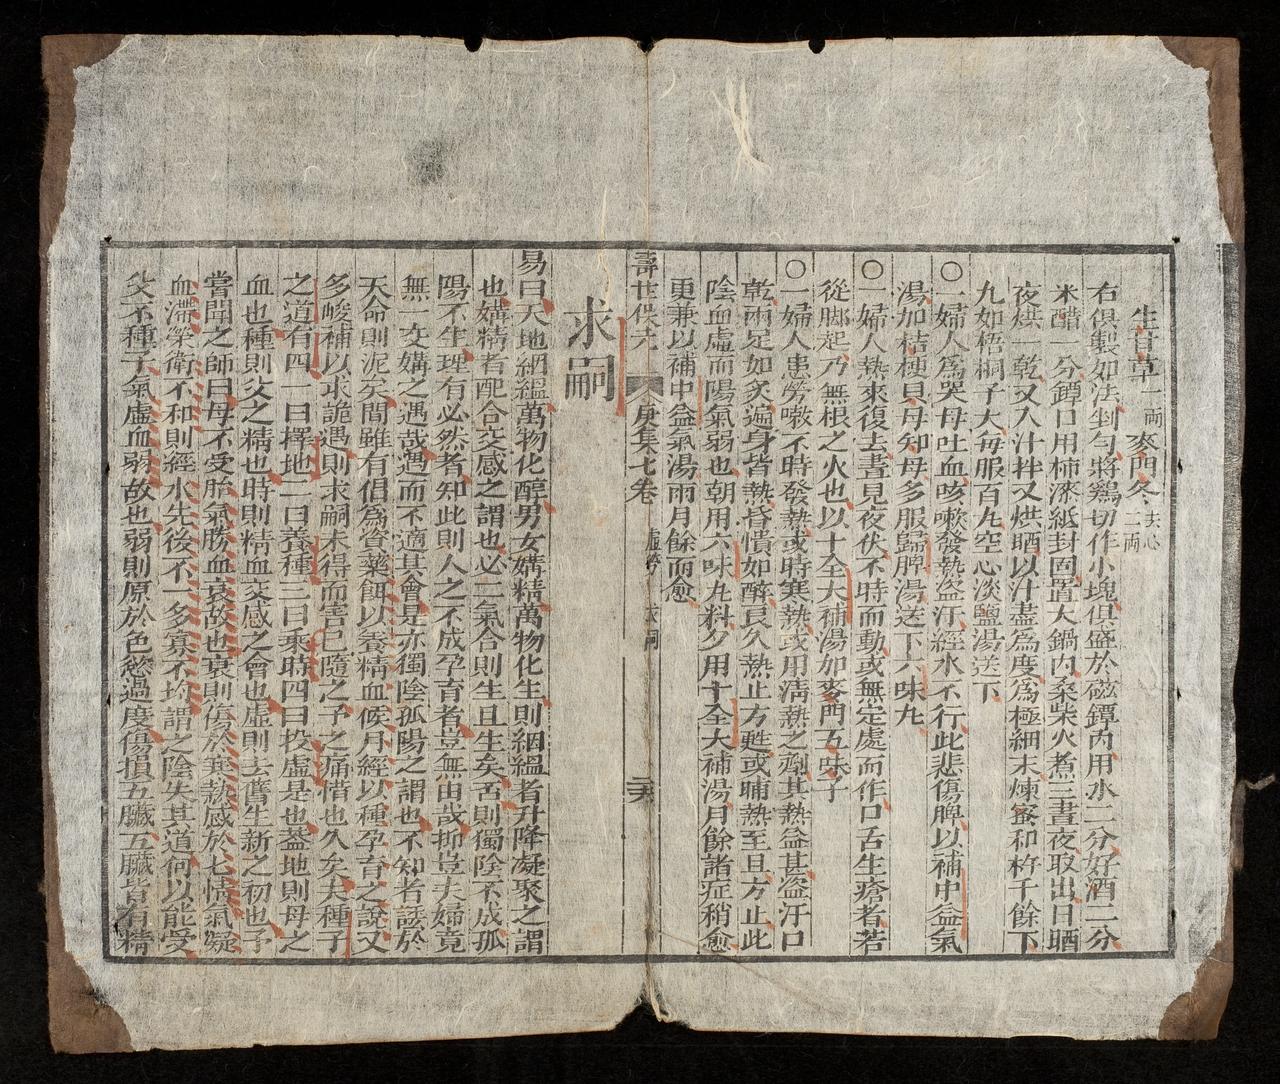 生甘草一兩 麥門冬去心二兩
右俱製如法剉勻將鷄切作小塊俱盛於磁罈內用水二分好酒二分
米醋一分罈口用柿漆紙封固置大鍋內桑柴火煮三晝夜取出日晒
夜烘一乾又入汁拌又烘晒以汁盡為度為極細末煉蜜和杵千餘下
九如梧桐子大每服百九空心淡鹽湯送下
〇一婦人為哭母吐血咳嗽發熱盜汗經水不行此悲傷脾以補中益氣
湯加桔梗貝母知母多服歸脾湯送下六味九
〇一婦人熱來復去晝見夜伏不時而動或無定處而作口舌生瘡者若
從脚起乃無根之火也以十全大補湯如麥門五味子
〇一婦人患勞嗽不時發熱或時寒熱或用清熱之劑其熱益甚盜汗口
乾兩足如炙遍身皆熱昏憒如醉良久熱止方甦或晡熱至旦方止此
陰血虛而陽氣弱也朝用六味九料夕用十全大補湯月餘諸症稍愈
更兼以補中益氣湯兩月餘而愈
壽世保元 庚集七卷 虛勞 求嗣
求嗣
易曰天地絪縕萬物化醇男女媾精萬物化生則絪縕者升降凝聚之謂
也媾精者配合交感之謂也必二氣合則生且生矣否則獨陰不成孤
陽不生理有必然者知此則人之不成孕育者豈無由哉抑豈夫婦竟
無一交媾之遇哉遇而不適其會是亦獨陰孤陽之謂也不知者諉於
天命則泥矣間雖有倡為資藥餌以養精血候月經以種孕育之說又
多峻補以求詭遇則求嗣未得而害已隨之予之痛惜也久矣夫種子
之道有四一曰擇地二曰養種三曰乘時四曰投虛是也蓋地則母之
血也種則父之精也時則精血交感之會也虛則去舊生新之初也予
嘗聞之師曰母不受胎氣勝血衰故也衰則傷於寒熱感於七情氣凝
血滯榮衛不和則經水先後不一多寡不均謂之陰失其道何以能受
父不種子氣虛血弱故也弱則原於色慾過度傷損五臟五臟皆有精